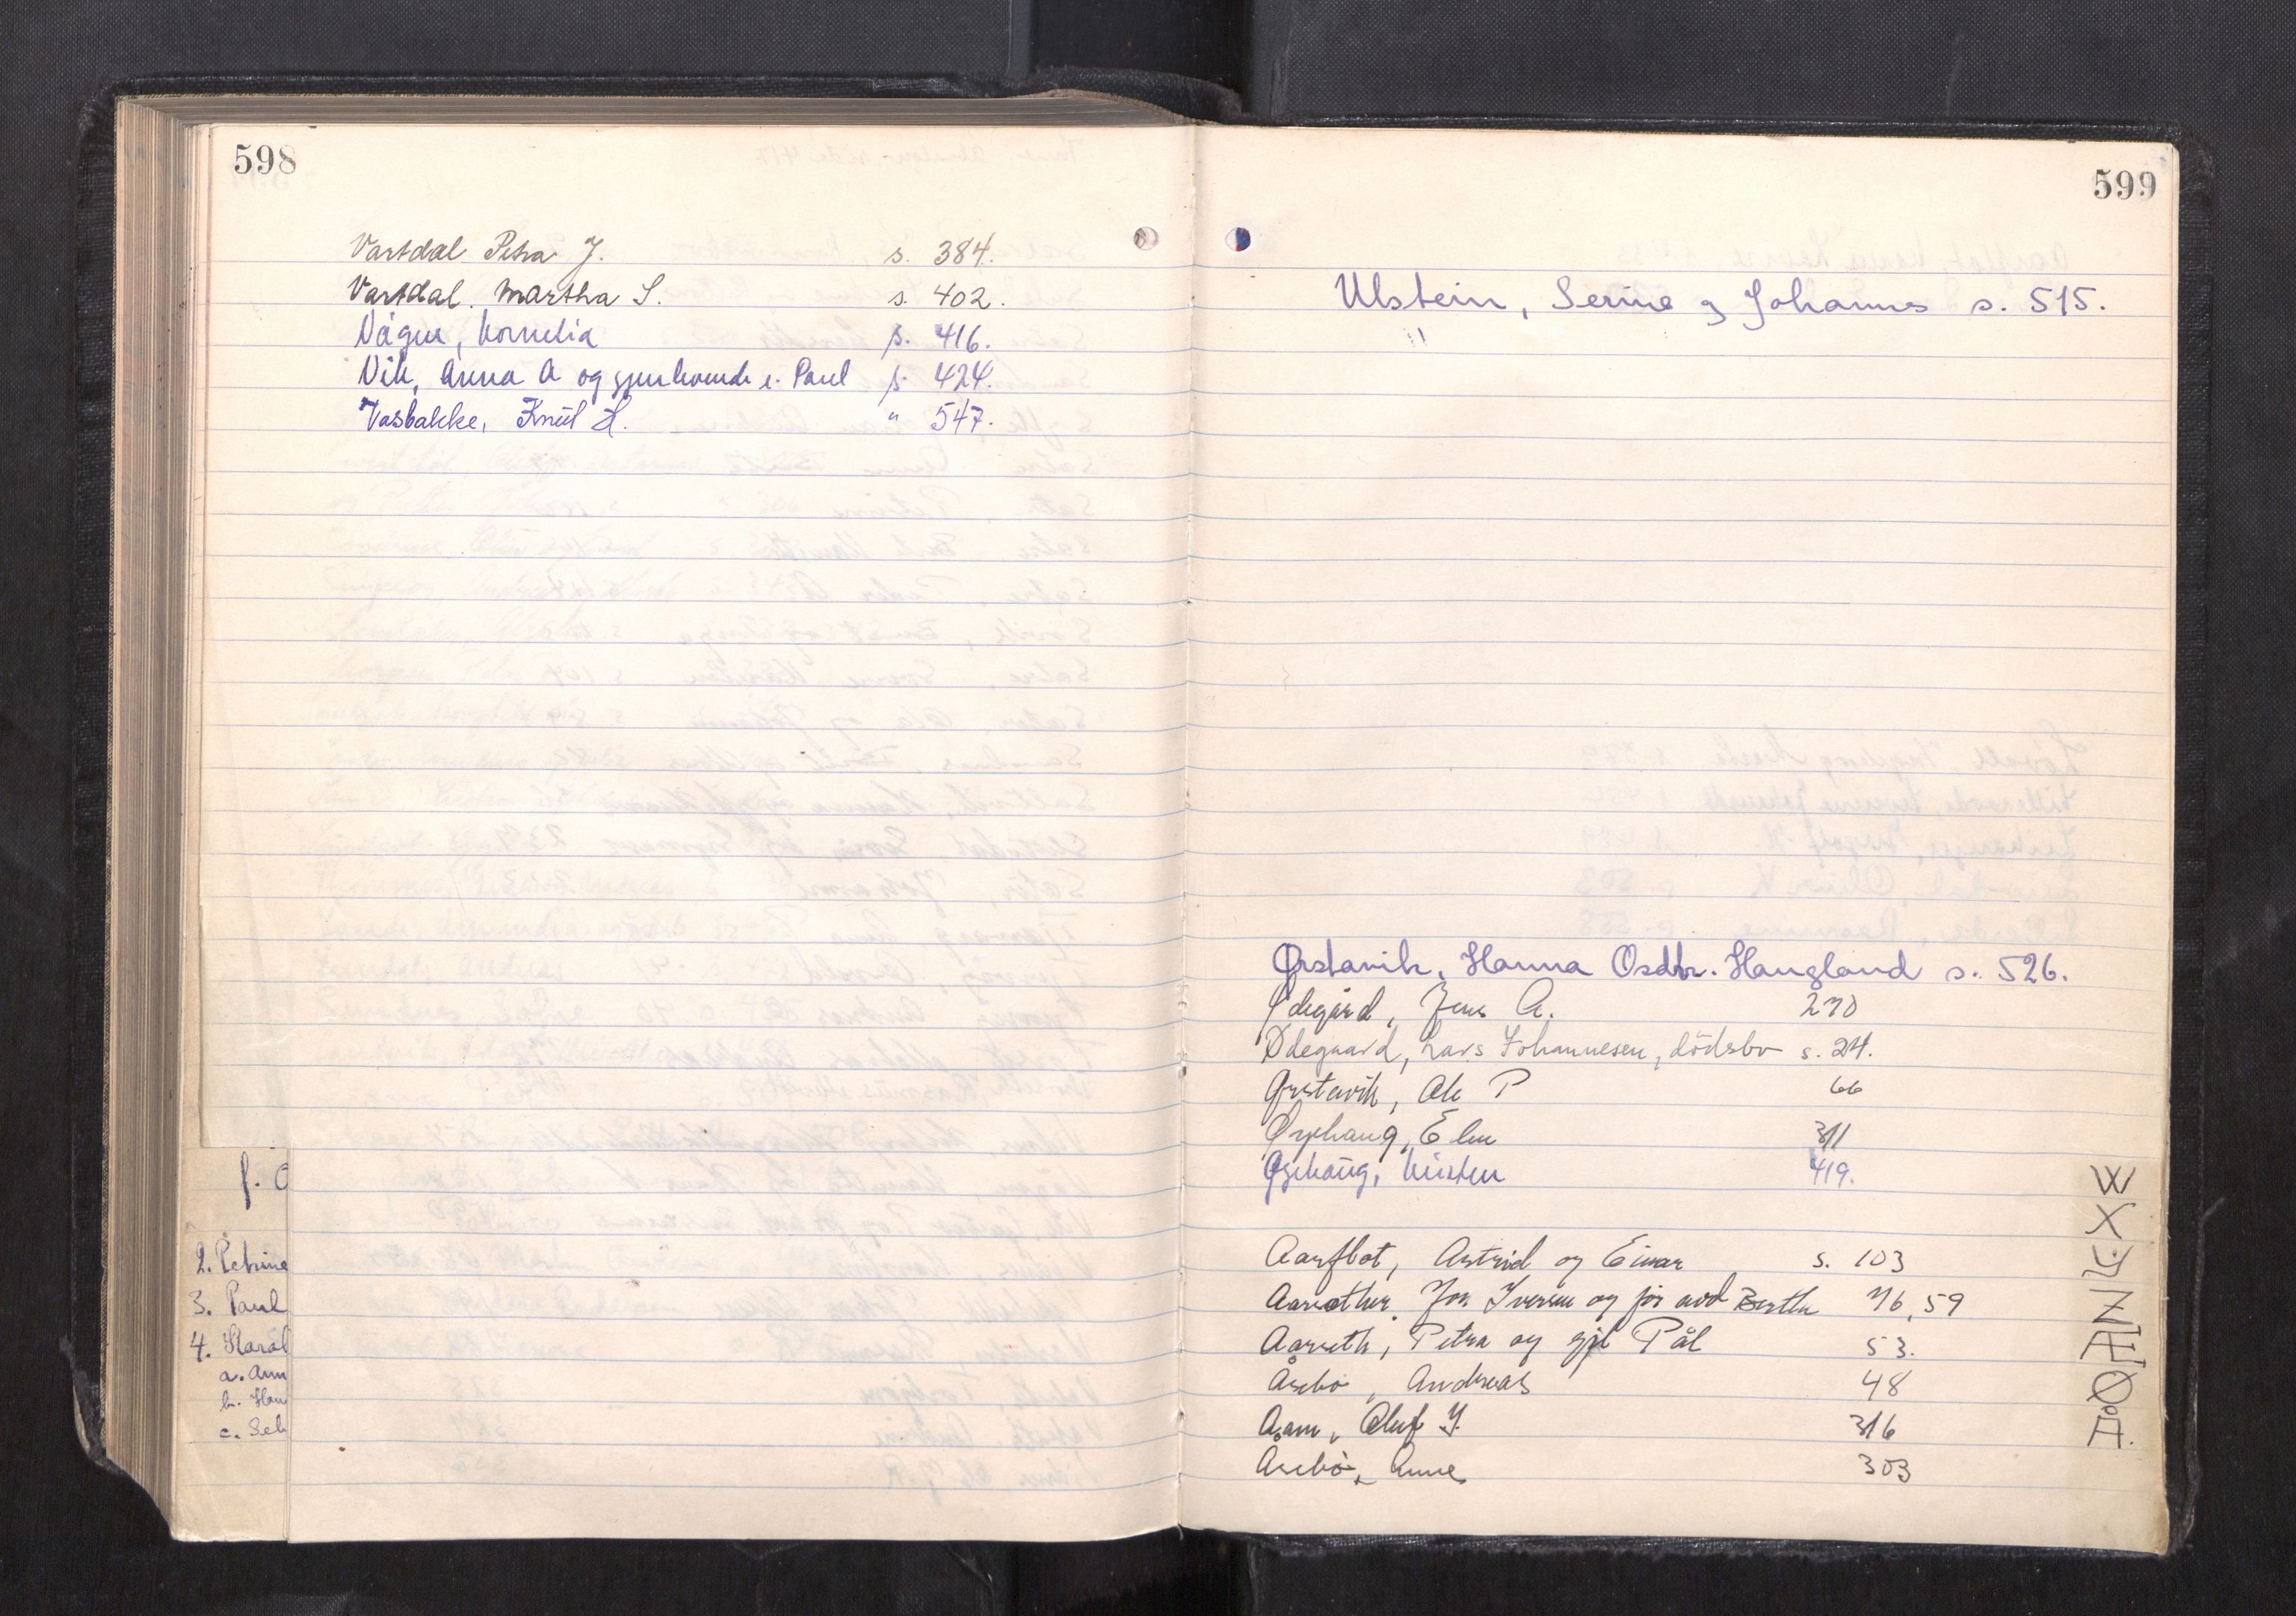 598
Vartdal Petra J. s. 384.
Vartdal. Martha S. s. 402.
Vågen, Kornelia s. 416.
Vik, Anna A og gjenlevende e. Paul s. 424.
Vasbakke, Knut H. " 547.
2. Petrine
3. Paul
4. Karal
a. Ann
b. Han
c. Sel
599
Ulstein, Serine og Johannes s. 515.
Ørstavik, Hanna Osdtr. Haugland s. 526.
Ødegård, Jens A. 270
Ødegaard, Lars Johannesen, dödsbo s. 24.
Ørstavik, Ole P 66
Øyehaug, Elen 311
Øyehaug, Kirsten 419.
Aarflot, Astrid og Einar s. 103
Jon Iversen og 76, 59
Aarseth, Petra og gjl Pål 53.
Åsebø, Andreas 48
Aam, Oluf J. 316
Åsebø, Anne 303
W
X
Z
Æ
Ø
Å.